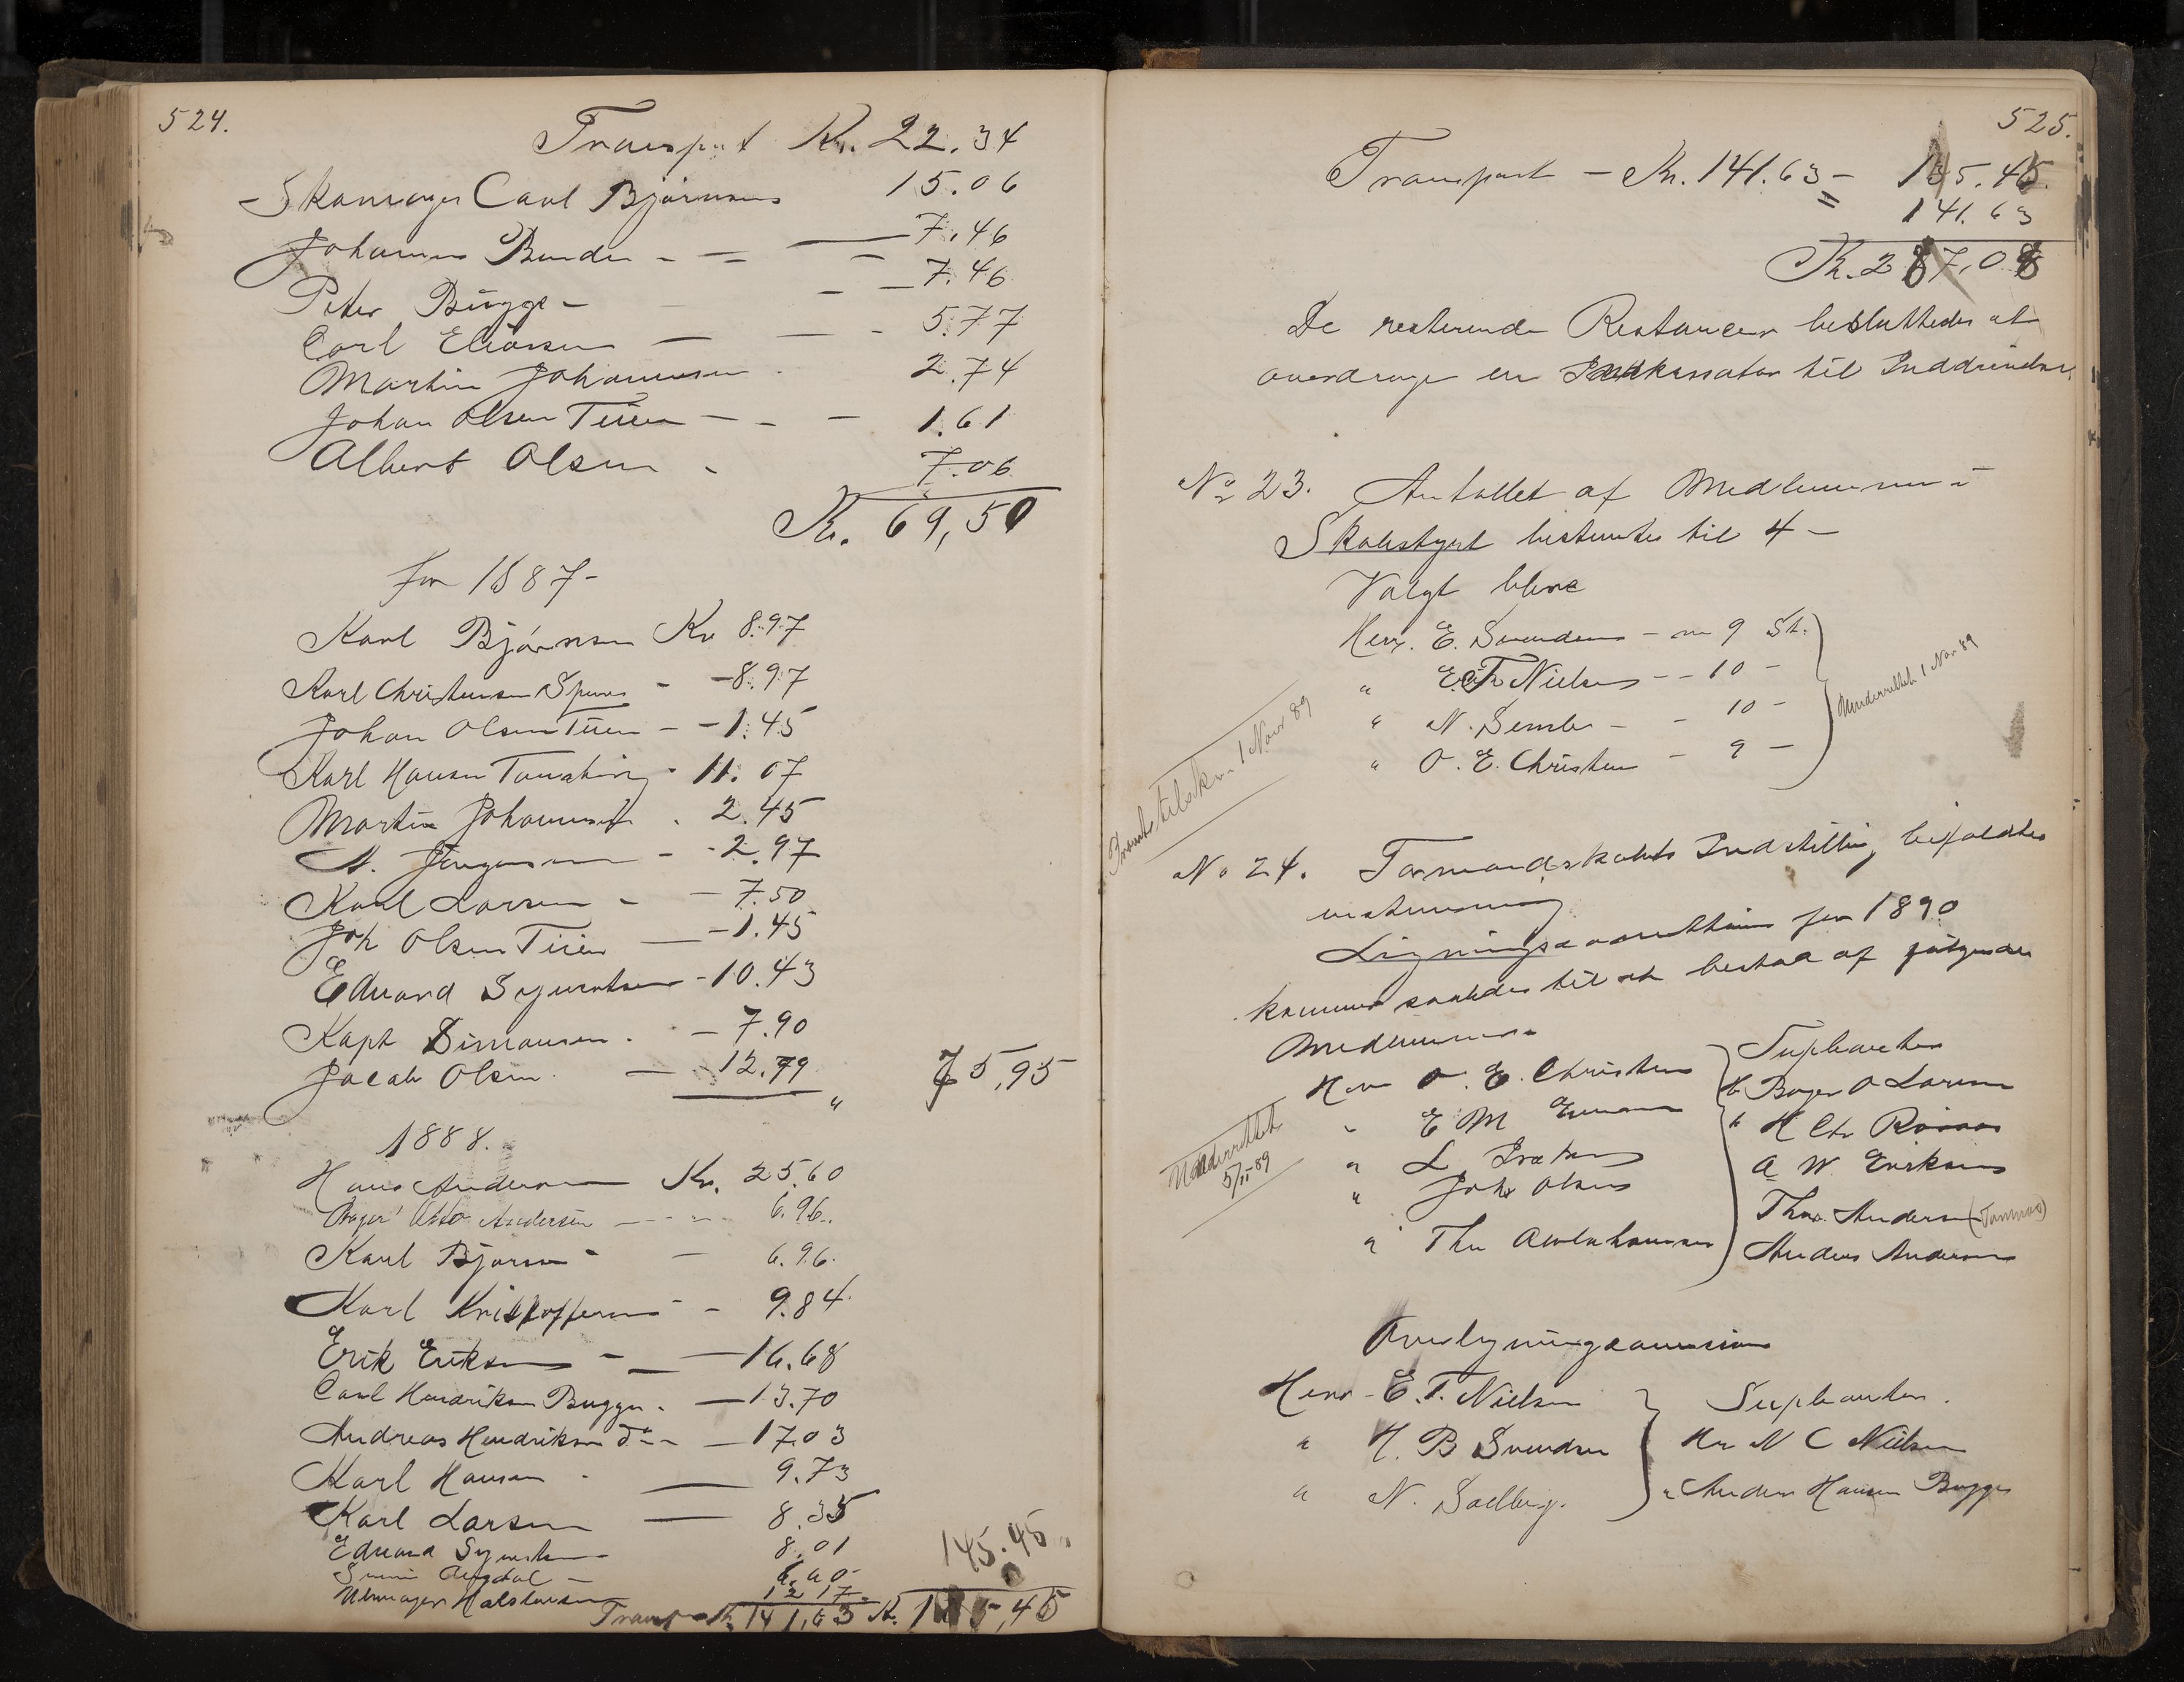 524.
Transport Kr. 22.34
Skomager Carl Bjørnsen 15.06
Johannes Bunde - - - 7.46
Peter Bugge - - - 7.46
Carl Eliassen - - - 5.77
Martin Johannesen 2.74
Johan Olsen Tiien - - - 1.61
Albert Olsen - 7.06
Kr. 69,50
for 1887-
Karl Bjørnsen Kr 8.97
Karl Christensen - - 8.97
Johan Olsen Tiien - - 1.45
Karl Hansen 11.07
Martin Johannesen 2.45
Jørgensen - - 2.97
Karl Larsen - - 7.50
Joh Olsen Tiien - - 1.45
Edvard - 10.43
Kapt Simonsen. - 7.90
Jacob Olsen - 12.79
" 75,95
1888.
Hans Andersen Kr. 25.60
Bager Otto Andersen - - - 6.96..
Karl Bjørsen - - 6.96.
Karl Kristoffersen - - 9.84.
Erik Eriksen - - 16.68
Carl Hendriksen Bugge. - 13.70
Andreas Hendriksen do - - 17.03
Karl Hansen - 9.73
Karl Larsen - 8.35
Edvard - 8.01
- 6.60
12 17
145.45
Transp. Kr. 141,63 Kr. 145,45
525.
Transport - Kr. 141.63 - 145.45
141.63
Kr. 287,08
De resterende Restancer besluttedes at
overdrage en Inkassator til Inddrivelse.
No 23. Antallet af Medlemmer i
Skolestyret bestemtes til 4 -
Valgt bleve
Herr. E. Svendsen - m 9 St.
" E. T. Nielsen - - 10 -
" N. - - 10 -
" O. E. Christensen - 9 -
Underrettet 1 Nov 89
1 Novr 89
No 24. Formandskabets Indstilling bifaldtes
enstemmig
Ligningscommissionen for 1890
kommer saaledes til at bestaa af følgende
Medlemmer
Herr O. E. Christensen
" E M
" L.
" Johs Olsen
" Thv
Underrettet
5/11 89
Supleanter
Hr Bager O Larsen
" H Chr
A W. Eriksen
Thor. Andersen
Anders Andersen
Overligningscommission
Herr - E. T. Nielsen
" H. B Svendsen
" N. Solberg.
Supleanter.
Hr N C Nielsen
" Anders Hansen Bugge